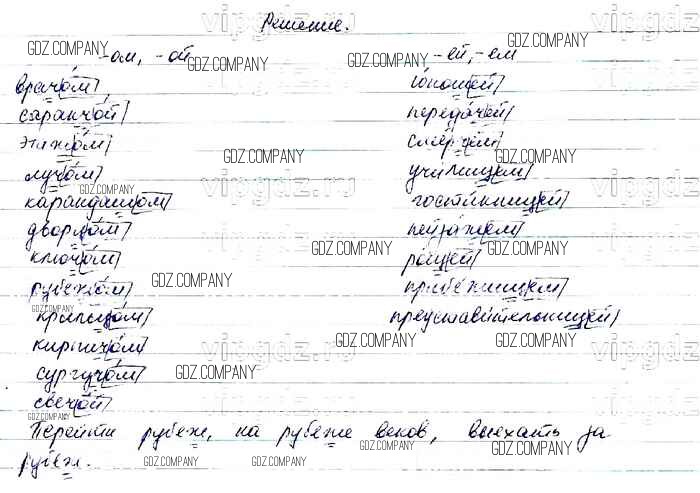 Решение.
-ом, -ой -ей, -ем
врачом, юношей
саранчой передачей
этажом смерчем
лучом училищем
карандашом гостиницей
дворцом пейзажем
ключом рощей
рубежом прибежищем
крыльцом представительницей
кирпичом
сургучом
свечой
Перейти рубеж, на рубеже веков, выехать за
рубеж.